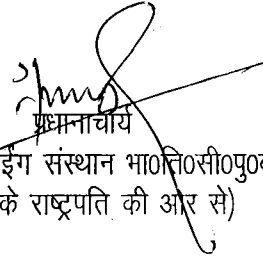 प्रधानाचार्य
ईंग संस्थान भा0ति0सी0पु0
के राष्ट्रपति की ओर से)